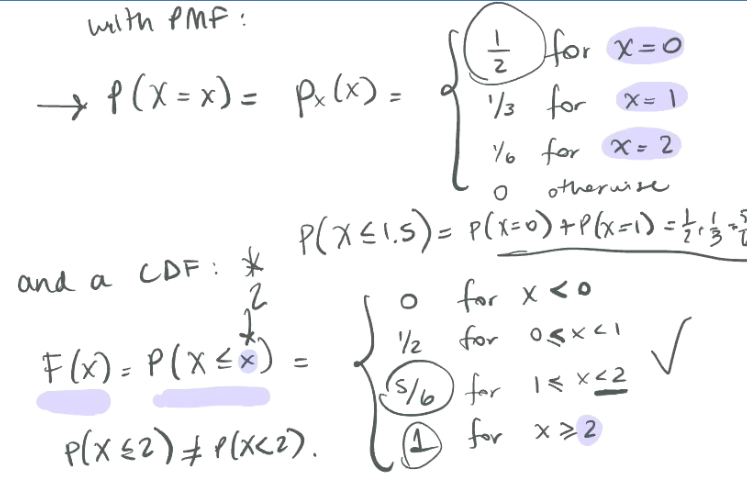 with PMF:
→ P(X = x) = Px(x) = { 1/2 for x = 0
1/3 for x = 1
1/6 for x = 2
0 otherwise
P(X ≤ 1.5) = P(X=0) + P(X=1) = 1/2 + 1/3 = 5/6
and a CDF: *
2
F(x) = P(X ≤ x) = { 0 for x < 0
1/2 for 0 ≤ x < 1
5/6 for 1 ≤ x < 2 ✓
1 for x ≥ 2
P(X ≤ 2) ≠ P(X < 2).